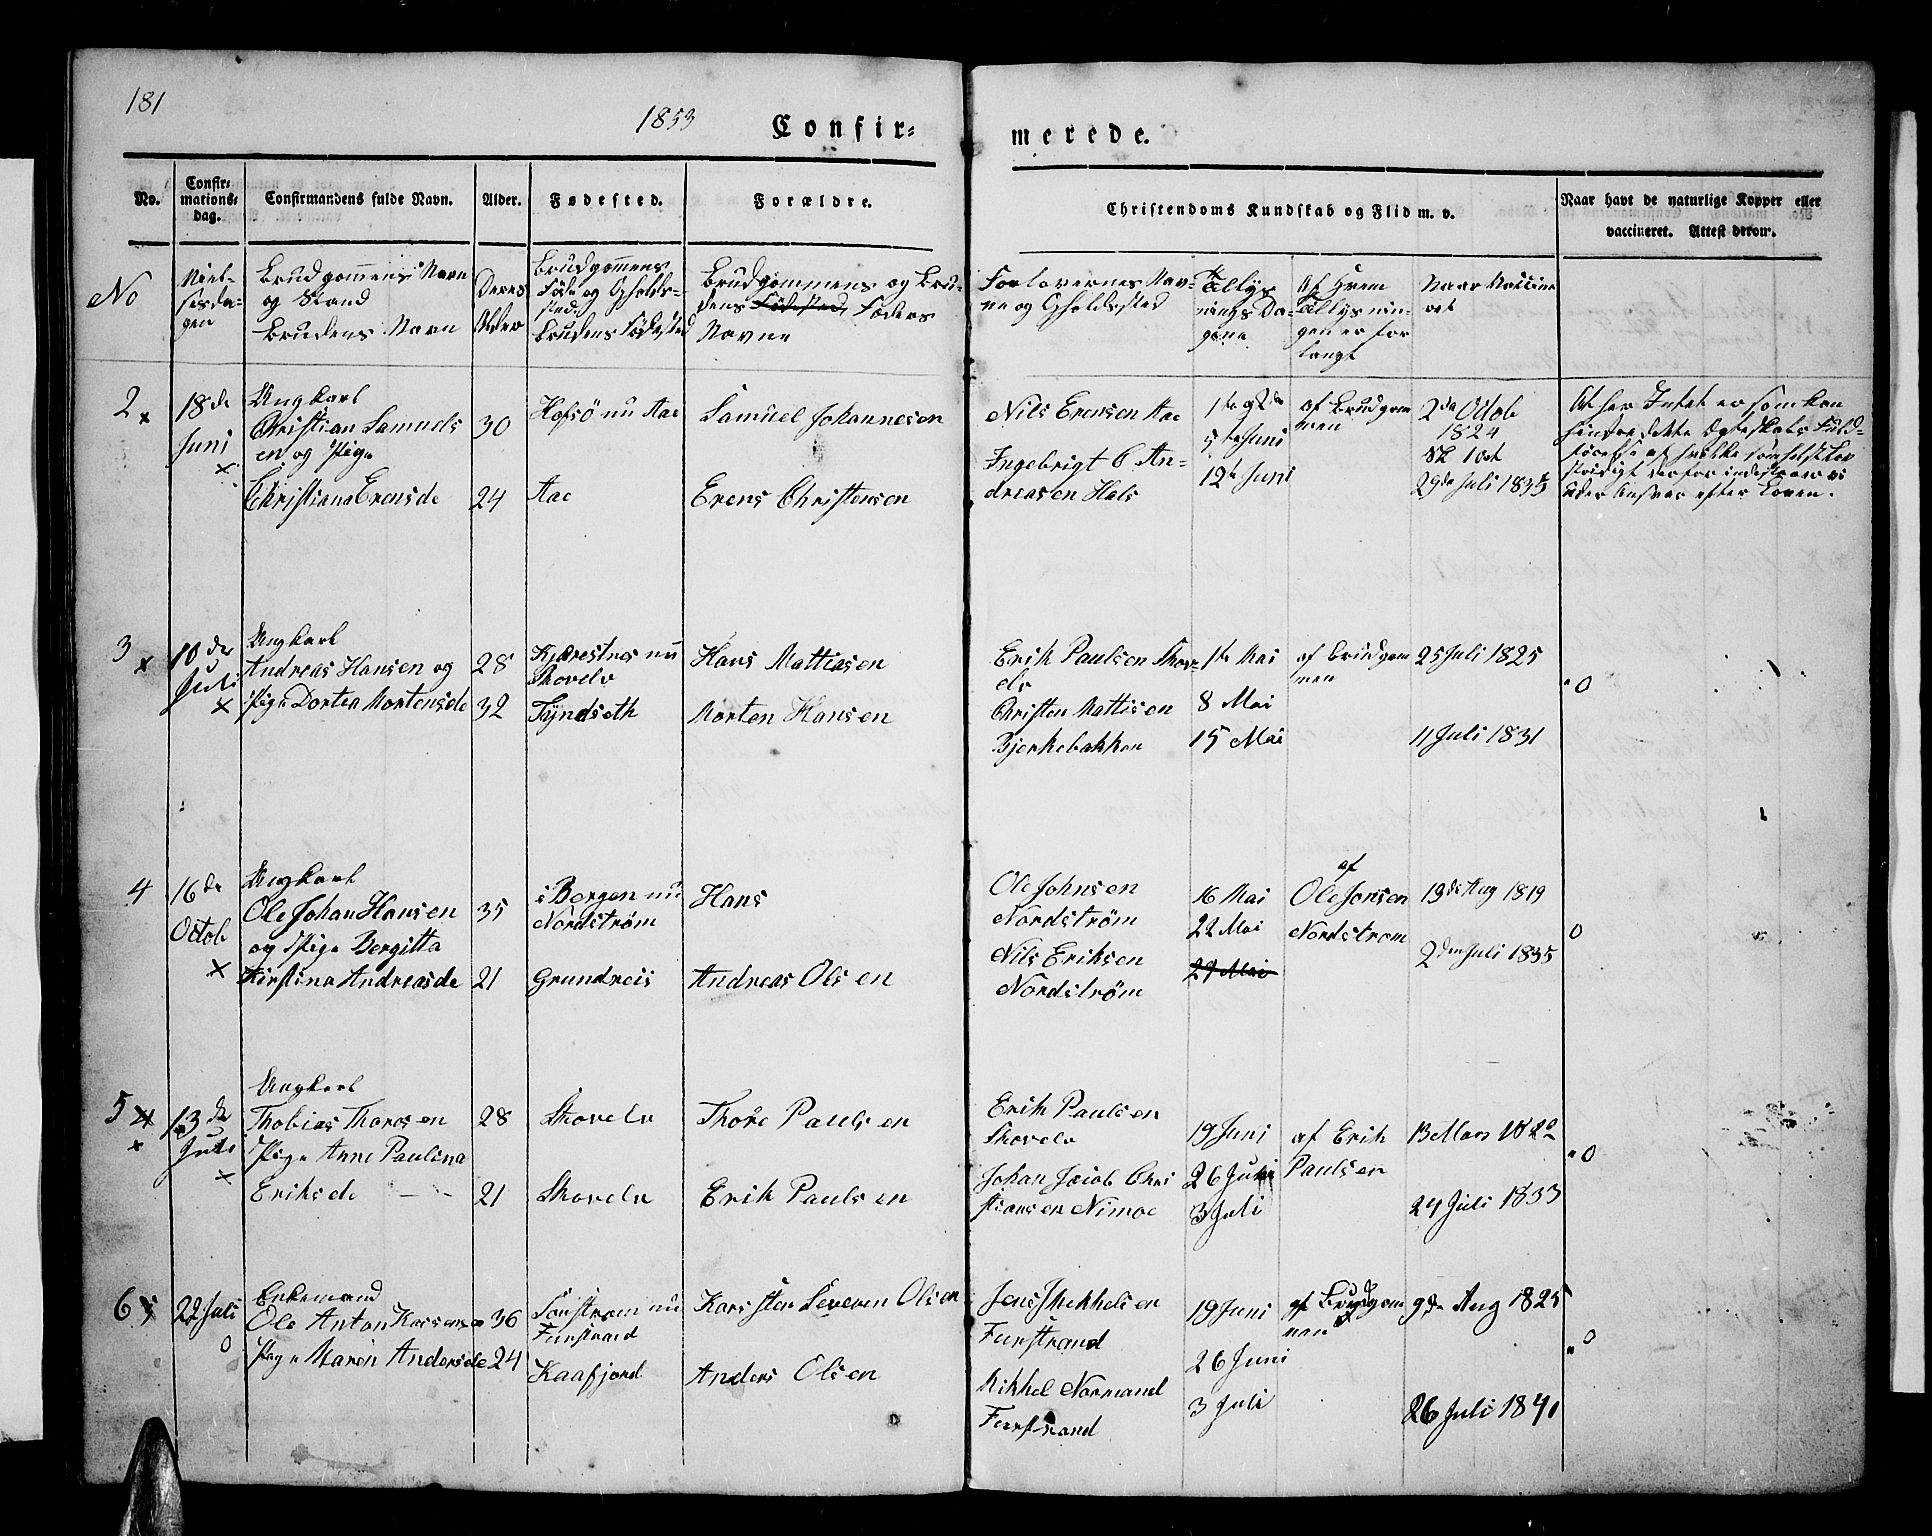 181
1853
Confir=
merede.
No.
Confir-
mations-
dag.
Confirmandens fulde Navn.
Alder.
Fødested.
Forældre.
Christendoms Kundskab og Flid m. v.
Naar havt de naturlige Kopper eller
vaccineret. Attest derom.
No
Viel-
sesda-
gen
Brudgommens Navn
og Stand
Brudens Navn
Deres
Alder
Brudgommens
Føde og Opholds-
sted
Brudens Fødested
Brudgommens og Bru-
dens Fødested, Faders
Navne
Forlovernes Nav-
ne og Opholdssted
Tillys
nings Da-
gene
Af Hvem
Tillysnin-
gen er for
langt
Naar Vaccine
ret
2 x
18de
Juni
x
Ungkarl
Christian Samuels
en og Pige
Christiana Erensde
30
24
Hofsö nu Aae
Aae
Samuel Johannesen
Erens Christensen
Nils Erensen Aae
Ingebrigt 6 An-
dreasen Hals
1te og 2de
5te Juni
12te Juni
af Brudgom
men
2de Octob
1824
29de Juli 1835
At her Intet er som kan
hindre dette Ægteskabs Fuld-
Under Ansvar efter Loven.
3 x
10de
Juli
x
Ungkarl
Andreas Hansen og
Pige Dortea Mortensde
28
32
Kjærestnes nu
Skovelv
Tyndseth
Hans Mattiesen
Morten Hansen
Erik Paulsen Skov-
elv
Christen Mattisen
Bjerkebakken
1te Mai
8 Mai
15 Mai
af Brudgom
men
25 Juli 1825
11 Juli 1831
"0
4
16de
Octob
x
Ungkarl
Ole Johan Hansen
og Pige Bergitta
Kirstina Andreasde
35
21
i Bergen nu
Nordstrøm
Grundreis
Hans
Andreas Olsen
Ole Johnsen
Nordstrøm
Nils Eriksen
Nordstrøm
16 Mai
22 Mai
29 Mai
af
Ole Jonsen
Nordstrom
19de Aug 1819
2den Juli 1835
0
5
x
13de
Juli
x
Ungkarl
Thobias Tharasen
Pige Anne Paulina
Eriksde
28
21
Skovelv
Skovelv
Thore Paulsen
Erik Paulsen
Erik Paulsen
Skovelv
Johan Jacob Chri
stiansen Nimoe
19 Juni
26 Juni
3 Juli
af Erik
Paulsen
13 Mars 1822
24 Juli 1833
"0
6
22 Juli
0
Enkemand
Ole Anton Karsens
Pige Maren Andersde
36
24
Sorstrom nu
Furstrand
Kaafjord
Karsten Severen Olsen
Anders Olsen
Jens Mikkelsen
Furstrand
Mikkel Normand
Furstrand
19 Juni
26 Juni
3 Juli
af Brudgom
men
9de Aug 1825
26 Juli 1841
"0